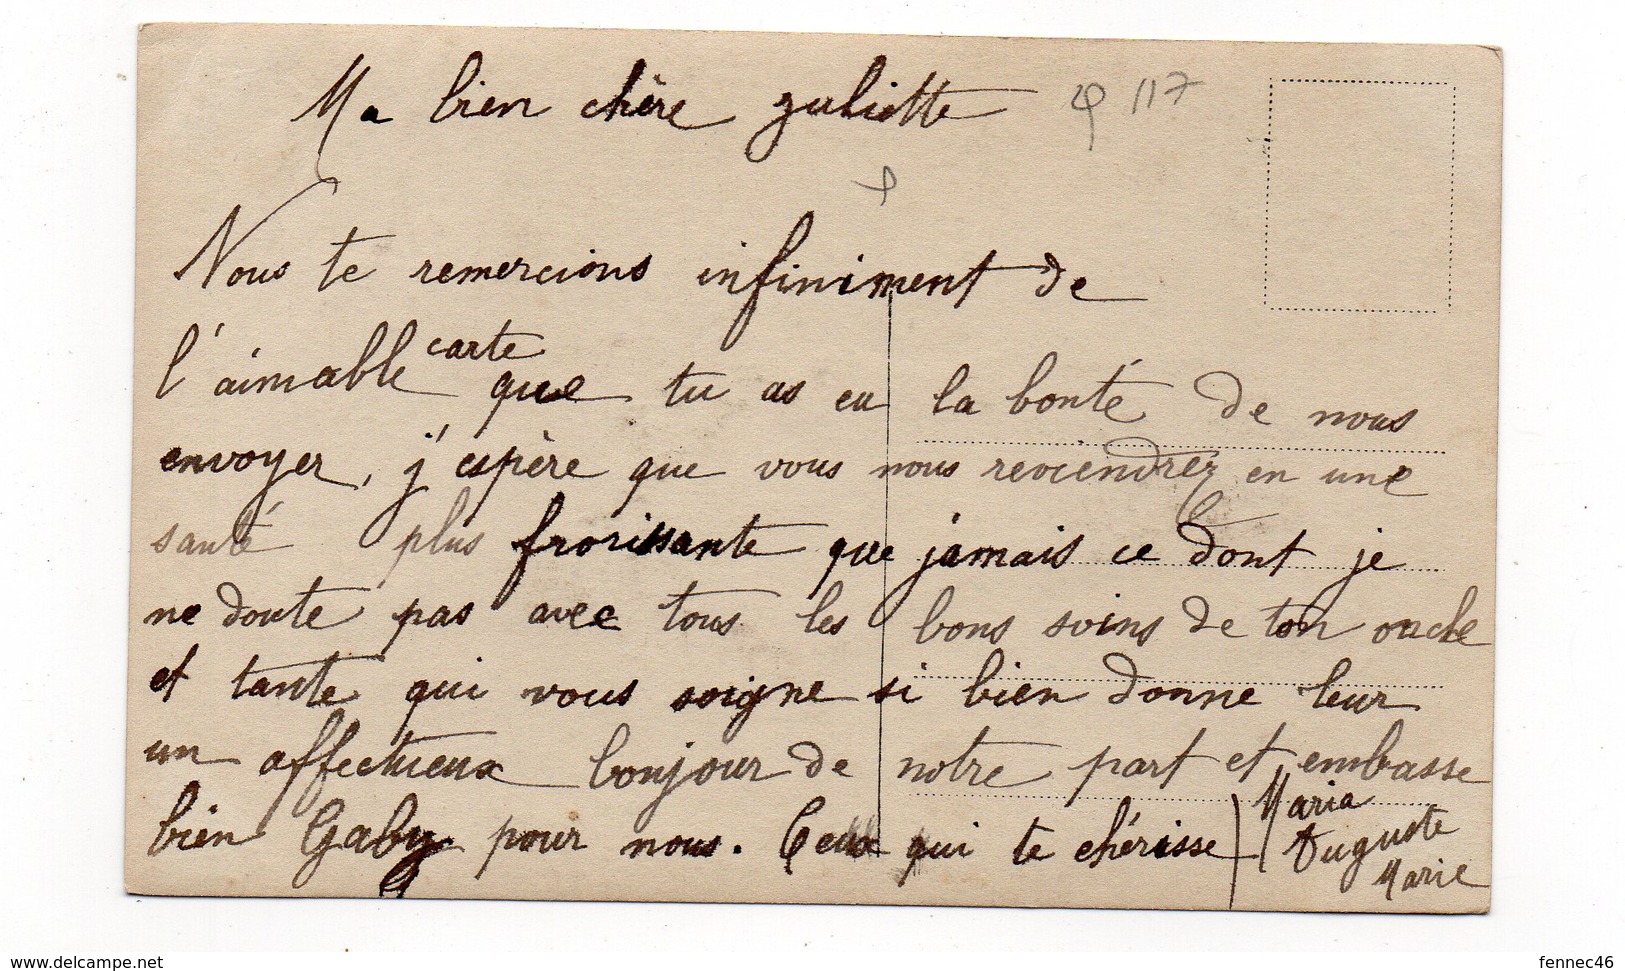 Ma bien chère Juliette
117
Nous te remercions infiniment de
l'aimable carte que tu as eu la bonté de nous
envoyer, j'espère que vous nous reviendrez en une
santé plus frorissante que jamais ce dont je
ne doute pas avec tous les bons soins de ton oncle
et tante qui vous soigne si bien donne leur
un affectueux bonjour de notre part et embasse
bien Gaby pour nous. Ceux qui te chérisse
Maria
Auguste
Marie
www.delcampe.net
fennec46